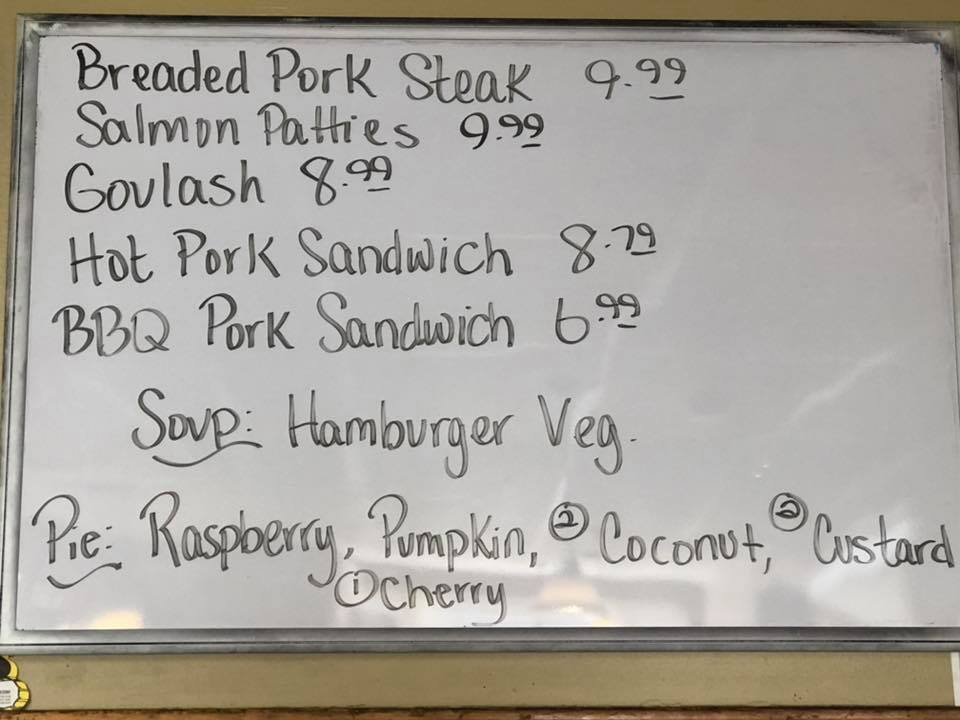 Breaded Pork Steak 9.99
Salmon Patties 9.99
Goulash 8.99
Hot Pork Sandwich 8.79
BBQ Pork Sandwich 6.99
Soup: Hamburger Veg.
Pie: Raspberry, Pumpkin, ② Coconut, ② Custard
① Cherry